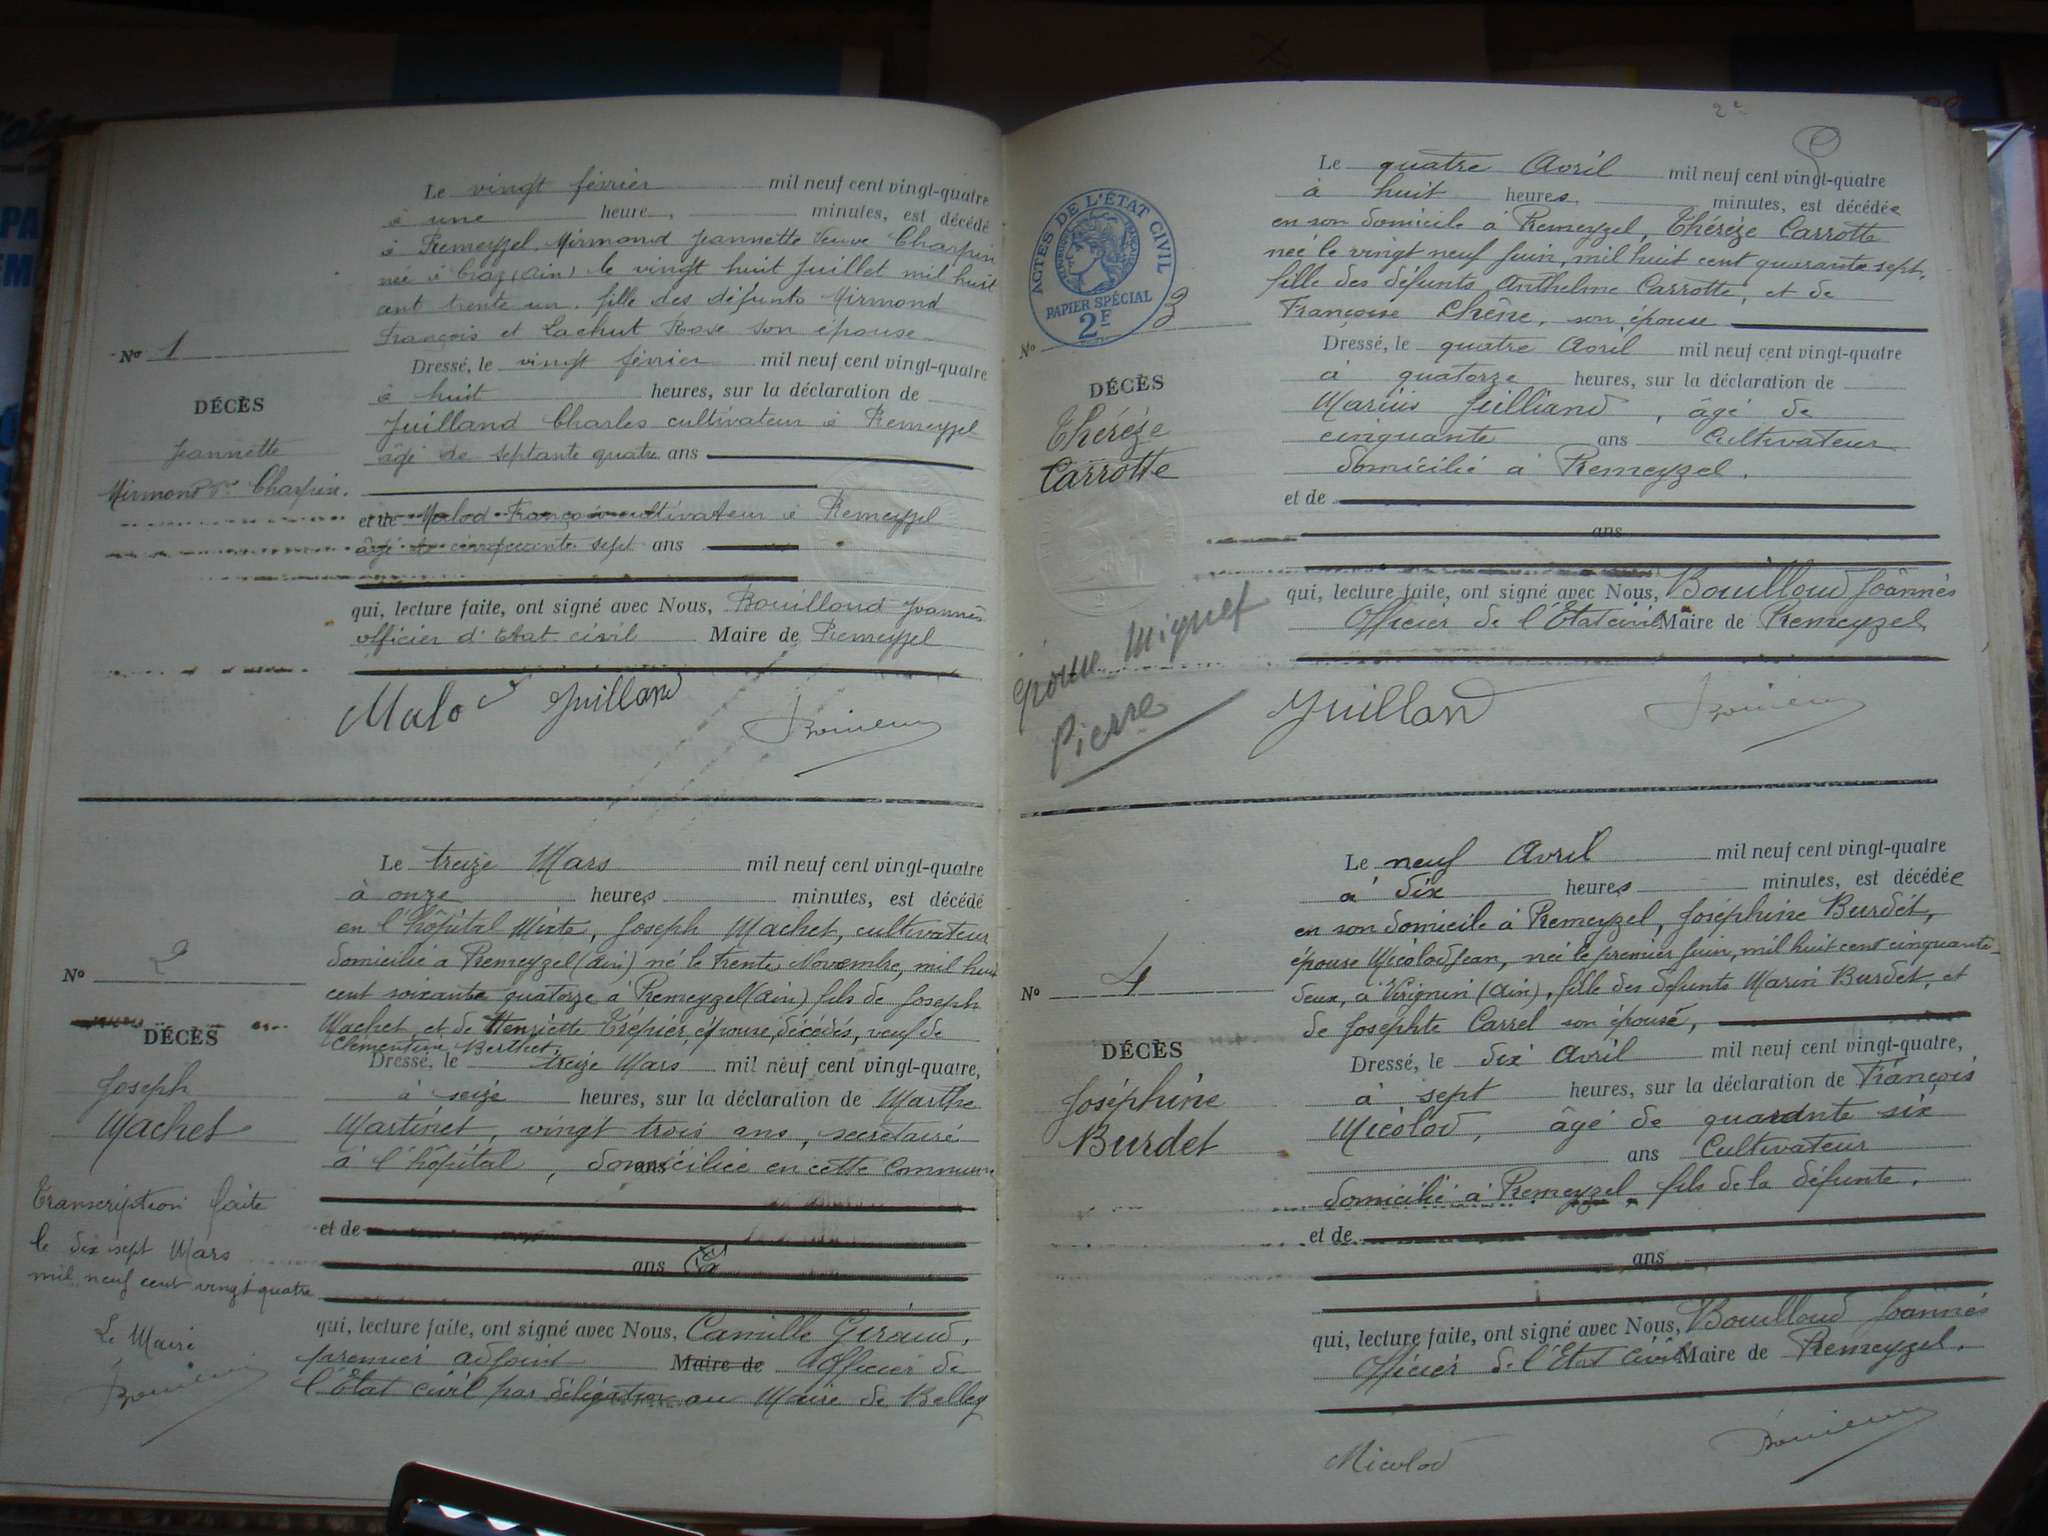 Le vingt février mil neuf cent vingt-quatre
à une heure, minutes, est décédé
à Premeyzel Mirmond Jeannette Veuve Charpin
née à (Ain) le vingt huit Juillet mil huit
cent trente un. fille des défunts Mirmond
François et Lachut Rose son épouse.
No 1
Dressé, le vingt février mil neuf cent vingt-quatre
à huit heures, sur la déclaration de
DÉCÈS
Juilland Charles cultivateur à Premeyzel
Jeannette
âgé de septante quatre ans
Mirmond Vve Charpin.
et de Malod François cultivateur à Premeyzel
âgé de cinquante sept ans
qui, lecture faite, ont signé avec Nous, Bouilloud Joannès
officier d'Etat civil Maire de Premeyzel
Malod Juilland
Le treize Mars mil neuf cent vingt-quatre
à onze heures minutes, est décédé
en l'hôpital Mixte, Joseph Machet, cultivateur
domicilié à Premeyzel (Ain) né le trente Novembre, mil huit
No 2
cent soixante quatorze à Premeyzel (Ain) fils de Joseph
Machet et de Henriette Trépier, épouse, décédés, veuf de
Clémentine Berthet.
DÉCÈS
Dressé, le treize Mars mil neuf cent vingt-quatre,
Joseph
à seize heures, sur la déclaration de Marthe
Machet
Martinet, vingt trois ans, secrétaire
à l'hôpital, domiciliée en cette Commune
ans
Transcription faite
le dix sept Mars
mil neuf cent vingt quatre
Le Maire
et de
ans
qui, lecture faite, ont signé avec Nous, Camille Giraud,
premier adjoint Maire de Officier de
l'Etat civil par délégation au Maire de Belley
2e
Le quatre Avril mil neuf cent vingt-quatre
à huit heures minutes, est décédée
en son domicile à Premeyzel, Thérèze Carrotte
née le vingt neuf Juin, mil huit cent quarante sept,
fille des défunts Anthelme Carrotte, et de
Françoise Chêne, son épouse
ACTES DE L'ÉTAT CIVIL
PAPIER SPÉCIAL
2F
No 3
Dressé, le quatre Avril mil neuf cent vingt-quatre
à quatorze heures, sur la déclaration de
DÉCÈS
Marius Juilliand, âgé de
Thérèze
cinquante ans Cultivateur
Carrotte
domicilié à Premeyzel.
et de
ans
qui, lecture faite, ont signé avec Nous, Bouilloud Joannès
Officier de l'Etat civil Maire de Premeyzel
épouse Miguet
Pierre
Juilland
Le neuf Avril mil neuf cent vingt-quatre
à dix heures minutes, est décédée
en son domicile à Premeyzel, Joséphine Burdet,
épouse Micolod Jean, née le premier Juin, mil huit cent cinquante
No 4
deux, à Virignin (Ain), fille des défunts Marin Burdet, et
de Josephte Carrel son épouse,
DÉCÈS
Dressé, le dix Avril mil neuf cent vingt-quatre,
Joséphine
à sept heures, sur la déclaration de François
Burdet
Micolod, âgé de quarante six
ans Cultivateur
domicilié à Premeyzel, fils de la défunte.
et de
ans
qui, lecture faite, ont signé avec Nous, Bouilloud Joannès
Officier de l'Etat Civil Maire de Premeyzel.
Micolod